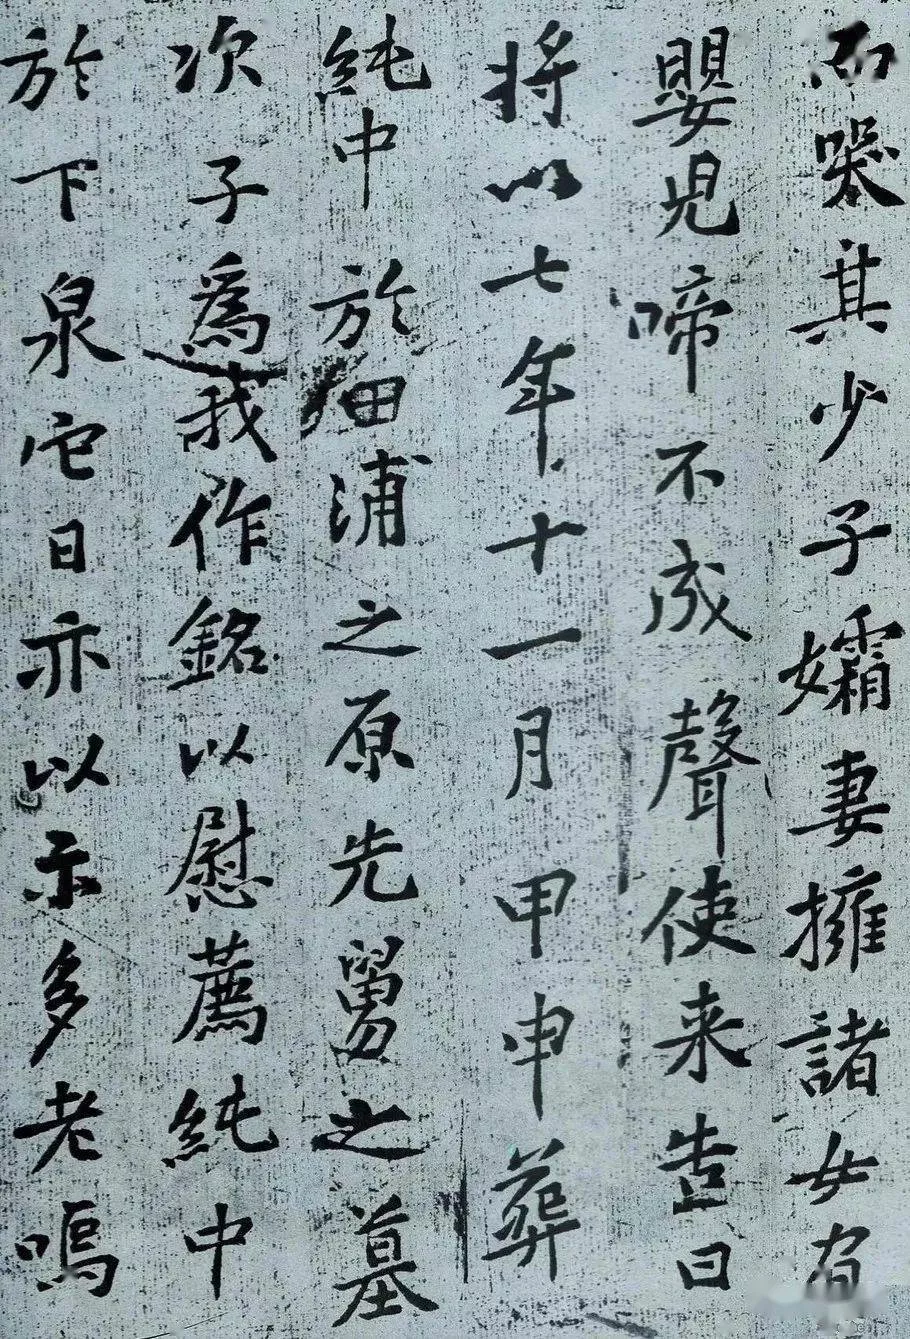 而嗥其少子孀妻擁諸女
嬰兒啼不成聲使来告曰
將以七年十一月甲申葬
純中於田浦之原先舅之墓
次子為我作銘以慰薦純中
於下泉它日亦以示多老嗚